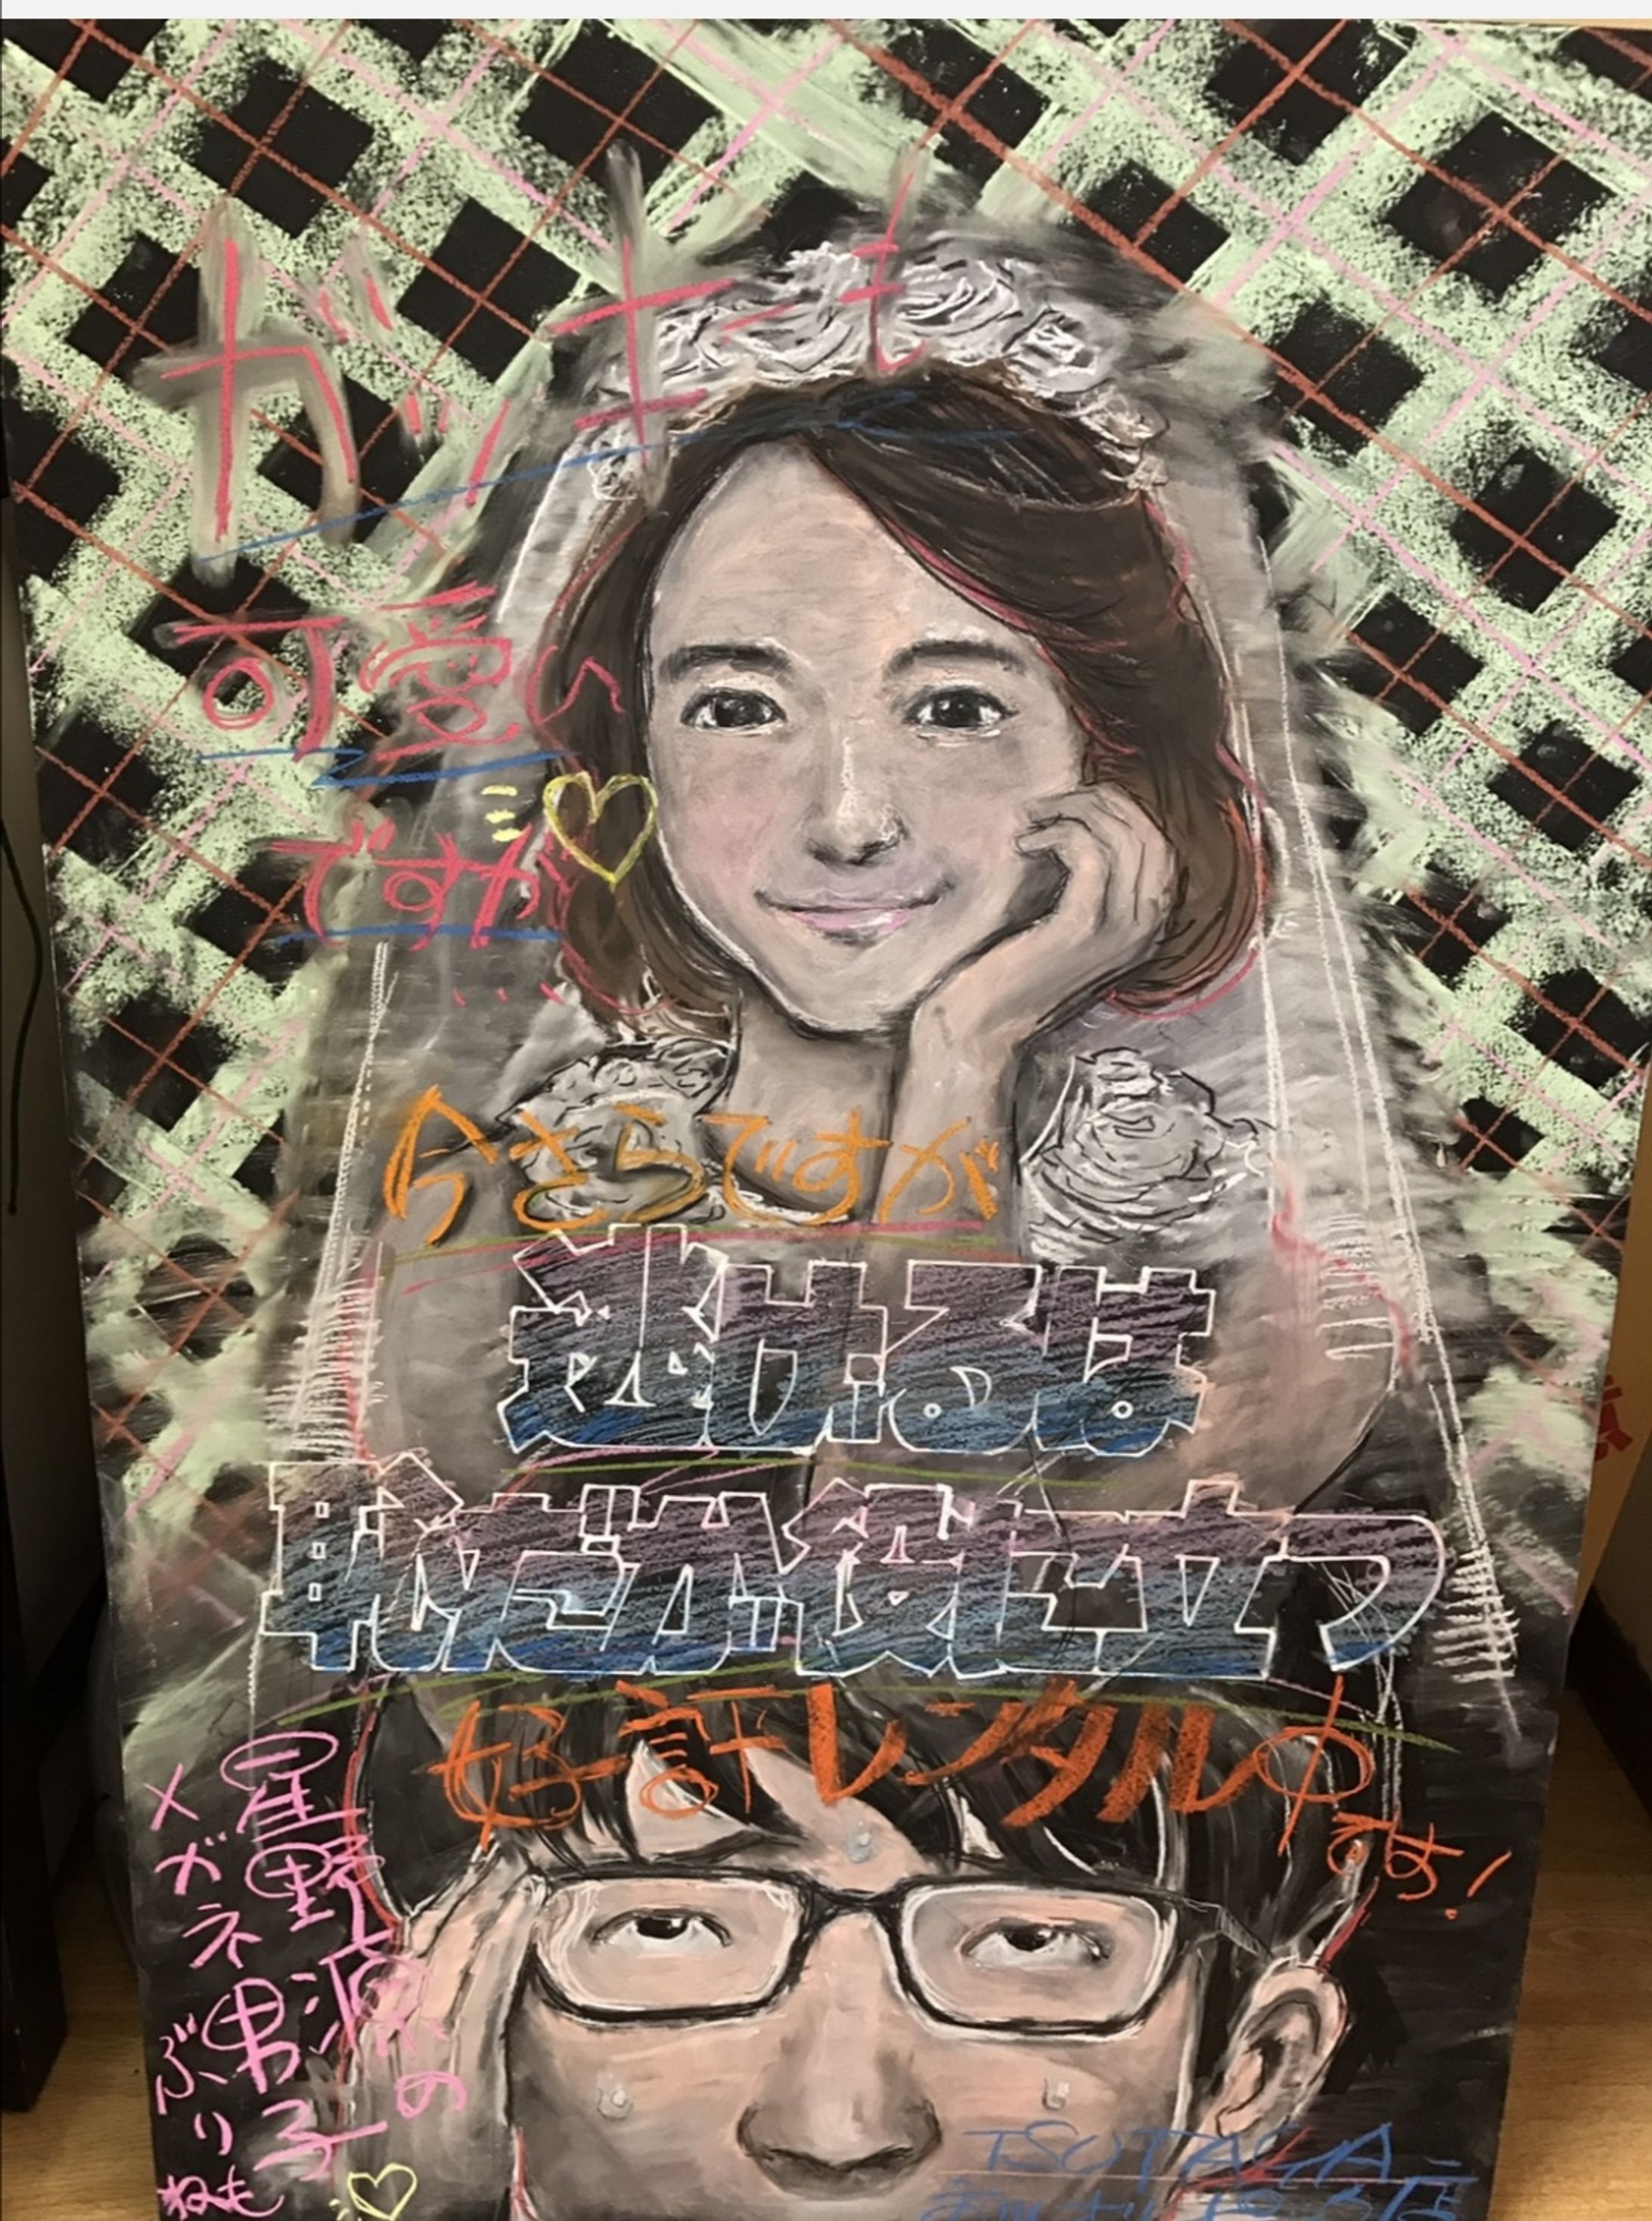 ガッキーも
可愛い
ですが
...
今さらですが
逃げるは
恥だが役に立つ
好評レンタル中
です!
星野源の
メガネ男子
ぶり
TSUTAYA